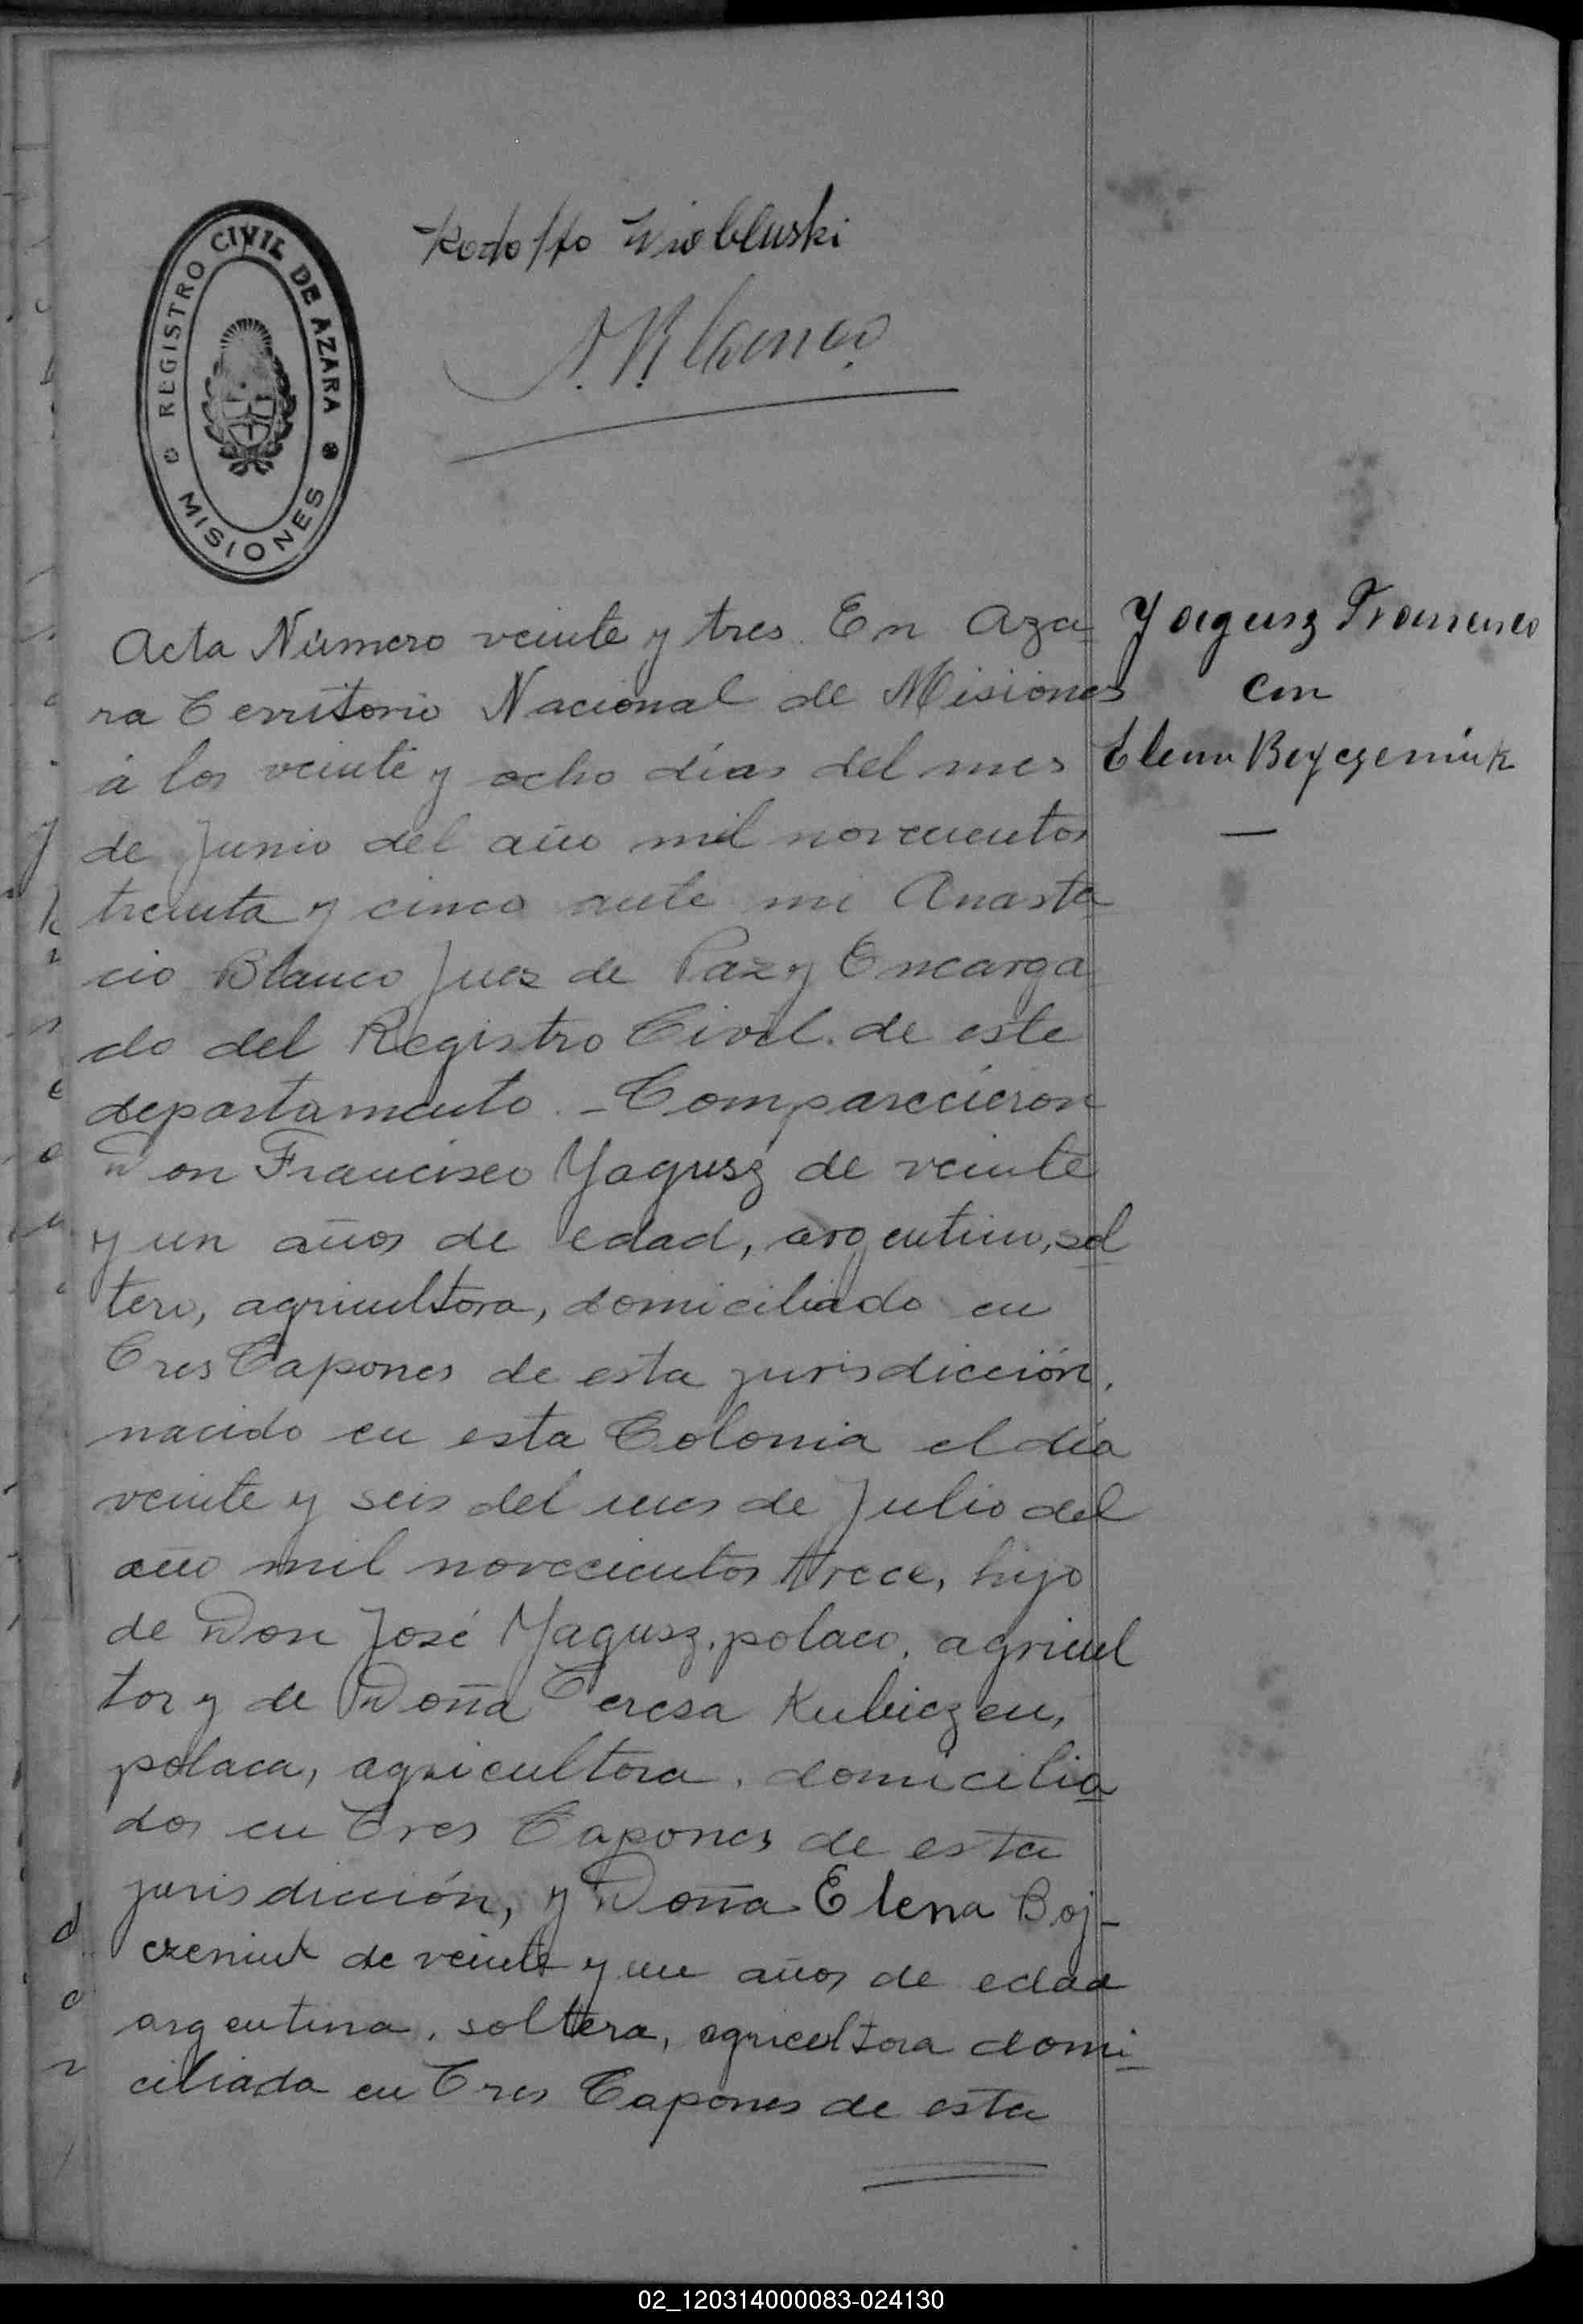 REGISTRO CIVIL DE AZARA
MISIONES
Rodolfo Wrobluski
Acta Número veinte y tres. En Aza
ra Territorio Nacional de Misiones
á los veinte y ocho días del mes
de Junio del año mil novecientos
treinta y cinco ante mi Anasta
cio Blanco Juez de Paz y Encarga
do del Registro Civil de este
departamento. - Comparecieron
Don Francisco Yagusz de veinte
y un años de edad, argentino, sol
tero, agricultora, domiciliado en
Tres Capones de esta jurisdicción,
nacido en esta Colonia el día
veinte y seis del mes de Julio del
año mil novecientos trece, hijo
de Don José Yagusz, polaco, agricul
tor y de Doña Teresa Kubiczen,
polaca, agricultora, domicilia
dos en Tres Capones de esta
jurisdicción, y Doña Elena Boj-
czeniuk de veinte y un años de edad
argentina, soltera, agricultora domi
ciliada en Tres Capones de esta
Yagusz Francisco
con
Elena Bojczeniuk
02_120314000083-024130